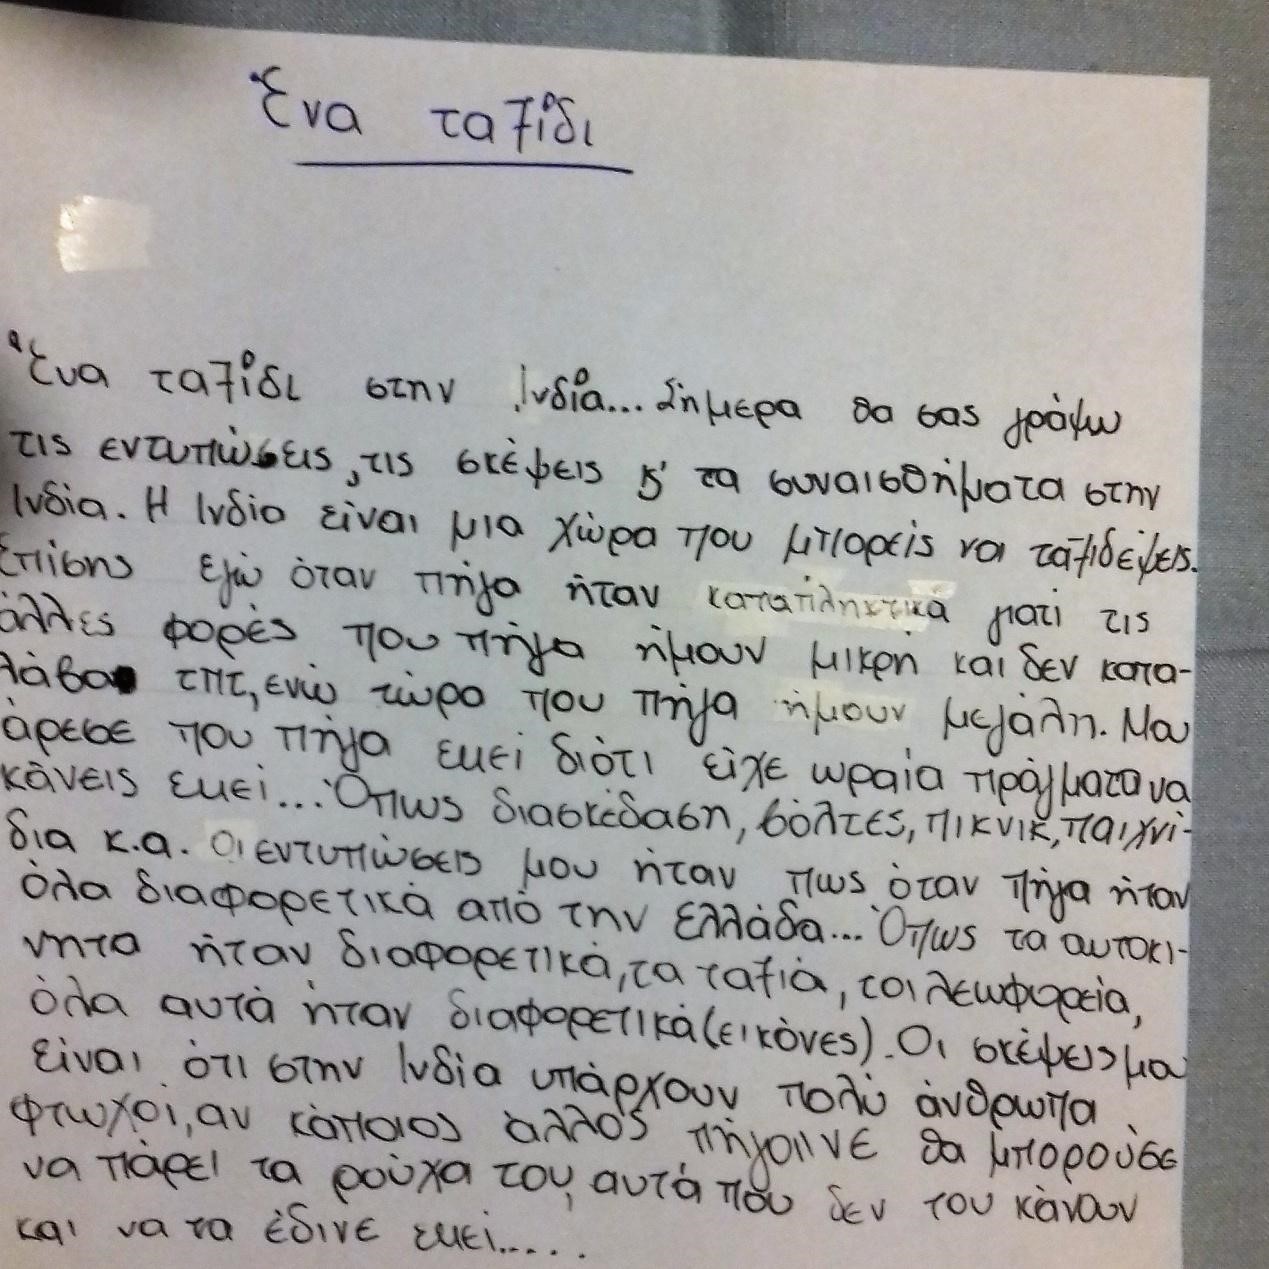 Ένα ταξίδι
Ένα ταξίδι στην Ινδία... Σήμερα θα σας γράψω
τις εντυπώσεις, τις σκέψεις κ' τα συναισθήματα στην
Ινδία. Η Ινδία είναι μια χώρα που μπιορείς να ταξιδέψεις.
Επίσης εγώ όταν πήγα ήταν καταπληκτικά γιατί τις
άλλες φορές που πήγα ήμουν μικρή και δεν κατα-
λάβα τπτ, ενώ τώρα που πήγα ήμουν μεγάλη. Μου
άρεσε που πήγα εκεί διότι είχε ωραία πράγματα να
κάνεις εκεί... Όπως διασκέδαση, βόλτες, πικνικ, παιχνί-
δια κ.α. Οι εντυπώσεις μου ήταν πως όταν πήγα ήταν
όλα διαφορετικά από την Ελλάδα... Όπως τα αυτοκι-
νητα ήταν διαφορετικά, τα ταξιά, τα λεωφορεία,
όλα αυτά ήταν διαφορετικά (εικόνες). Οι σκέψεις μα
είναι ότι στην Ινδία υπάρχουν πολύ άνθρωπα
φτωχοι, αν κάποιος άλλος πήγαινε θα μπορούσε
να πάρει τα ρούχα του, αυτά που δεν του κάνουν
και να τα έδινε εκεί.....